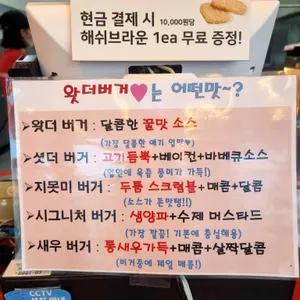 현금 결제 시 10,000원당
해쉬브라운 1ea 무료 증정!
왓더버거♥는 어떤맛~?
왓더 버거 : 달콤한 꿀맛 소스
(가장 달콤한 애기 입맛
셧더 버거 : 고기듬뿍+베이컨+바베큐소스
(입안에 육즙 풍미가 가득!)
지못미 버거 : 두툼 스크럼블+매콤+달콤
(소스가 돈맛탱!!)
시그니처 버거 : 생양파+수제 머스타드
(가장 깔끔! 기본에 충실해용)
새우 버거 : 통새우가득+매콤+살짝달콤
(버거중에 제일 매콤!)
CCTV